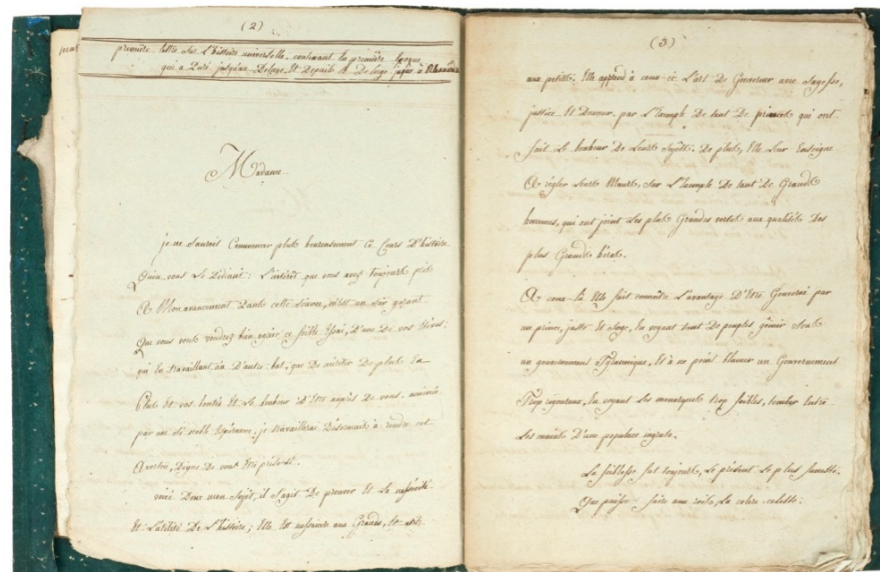 (2)
première lettre sur l'histoire universelle, contenant la première Epoque
qui a Duré jusqu'au Deluge, et Depuis le Deluge jusqu'à
Madame
je ne saurois Commencer plus heureusement ce Cours D'histoire
Qu'en vous Le Dédiant: L'intérêt que vous avez toujours pris
à Mon avancement Dans cette Science, m'est un sûr garant
Que vous voudrez bien agréer ce foible Essai, D'une De vos élèves;
qui En travaillant n'a D'autre but, que De mériter De plus En
Plus et vos bontés et Le bonheur D'être auprès De vous. animée
par une si belle Espérance, je travaillerai Désormais à rendre cet
Digne De vous être présenté.
mon Sujet, il s'agit De prouver et La nécessité
et L'utilité De L'histoire; Elle est nécessaire aux Grands, et utile
(3)
aux petits. Elle apprend à ceux-ci L'art De Gouverner avec Sagesse,
justice et Douceur, par L'Exemple De tant De princes qui ont
fait Le bonheur De Leurs Sujets. De plus, Elle Leur Enseigne
à régler Leurs Mœurs, Sur L'Exemple De tant De Grands
hommes, qui ont joint Les plus Grandes vertus aux qualités Des
plus Grands héros.
à ceux-là Elle fait connoître L'avantage D'être Gouverné par
un prince, juste et Sage, En voyant tant De peuples gémir Sous
un gouvernement Tyrannique, et à ne point blamer un Gouvernement
Trop rigoureux, En voyant Des monarques trop foibles, tomber Entre
Les mains D'une populace ingrate.
La foiblesse fut toujours, Le présent Le plus funeste.
Que puisse faire aux rois, La colère céleste: